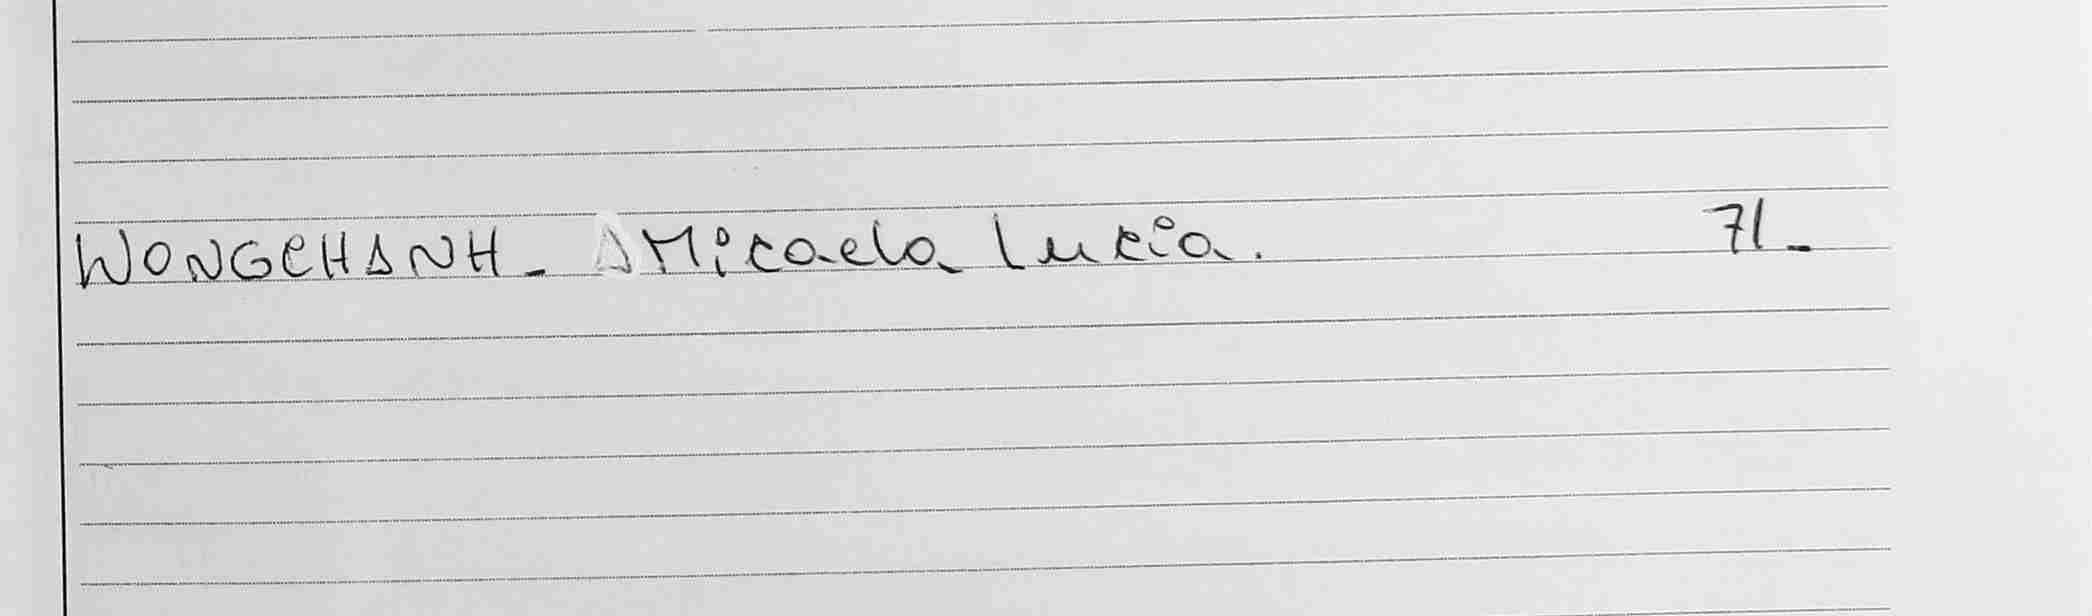 WONGCHANH. Micaela Lucia. 71.